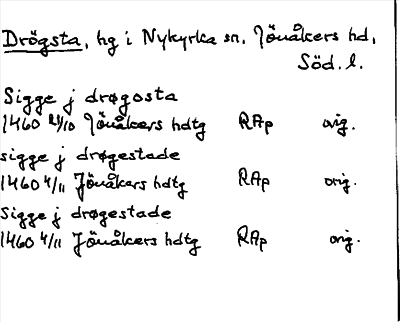 Drögsta, hg i Nykyrka sn, Jönåkers hd,
Söd. l.
Sigge j drøgosta
1460 21/10 Jönåkers hdtg RAp orig.
sigge j drøgestade
1460 4/11 Jönåkers hdtg RAp orig.
Sigge j drøgestade
1460 4/11 Jönåkers hdtg RAp orig.